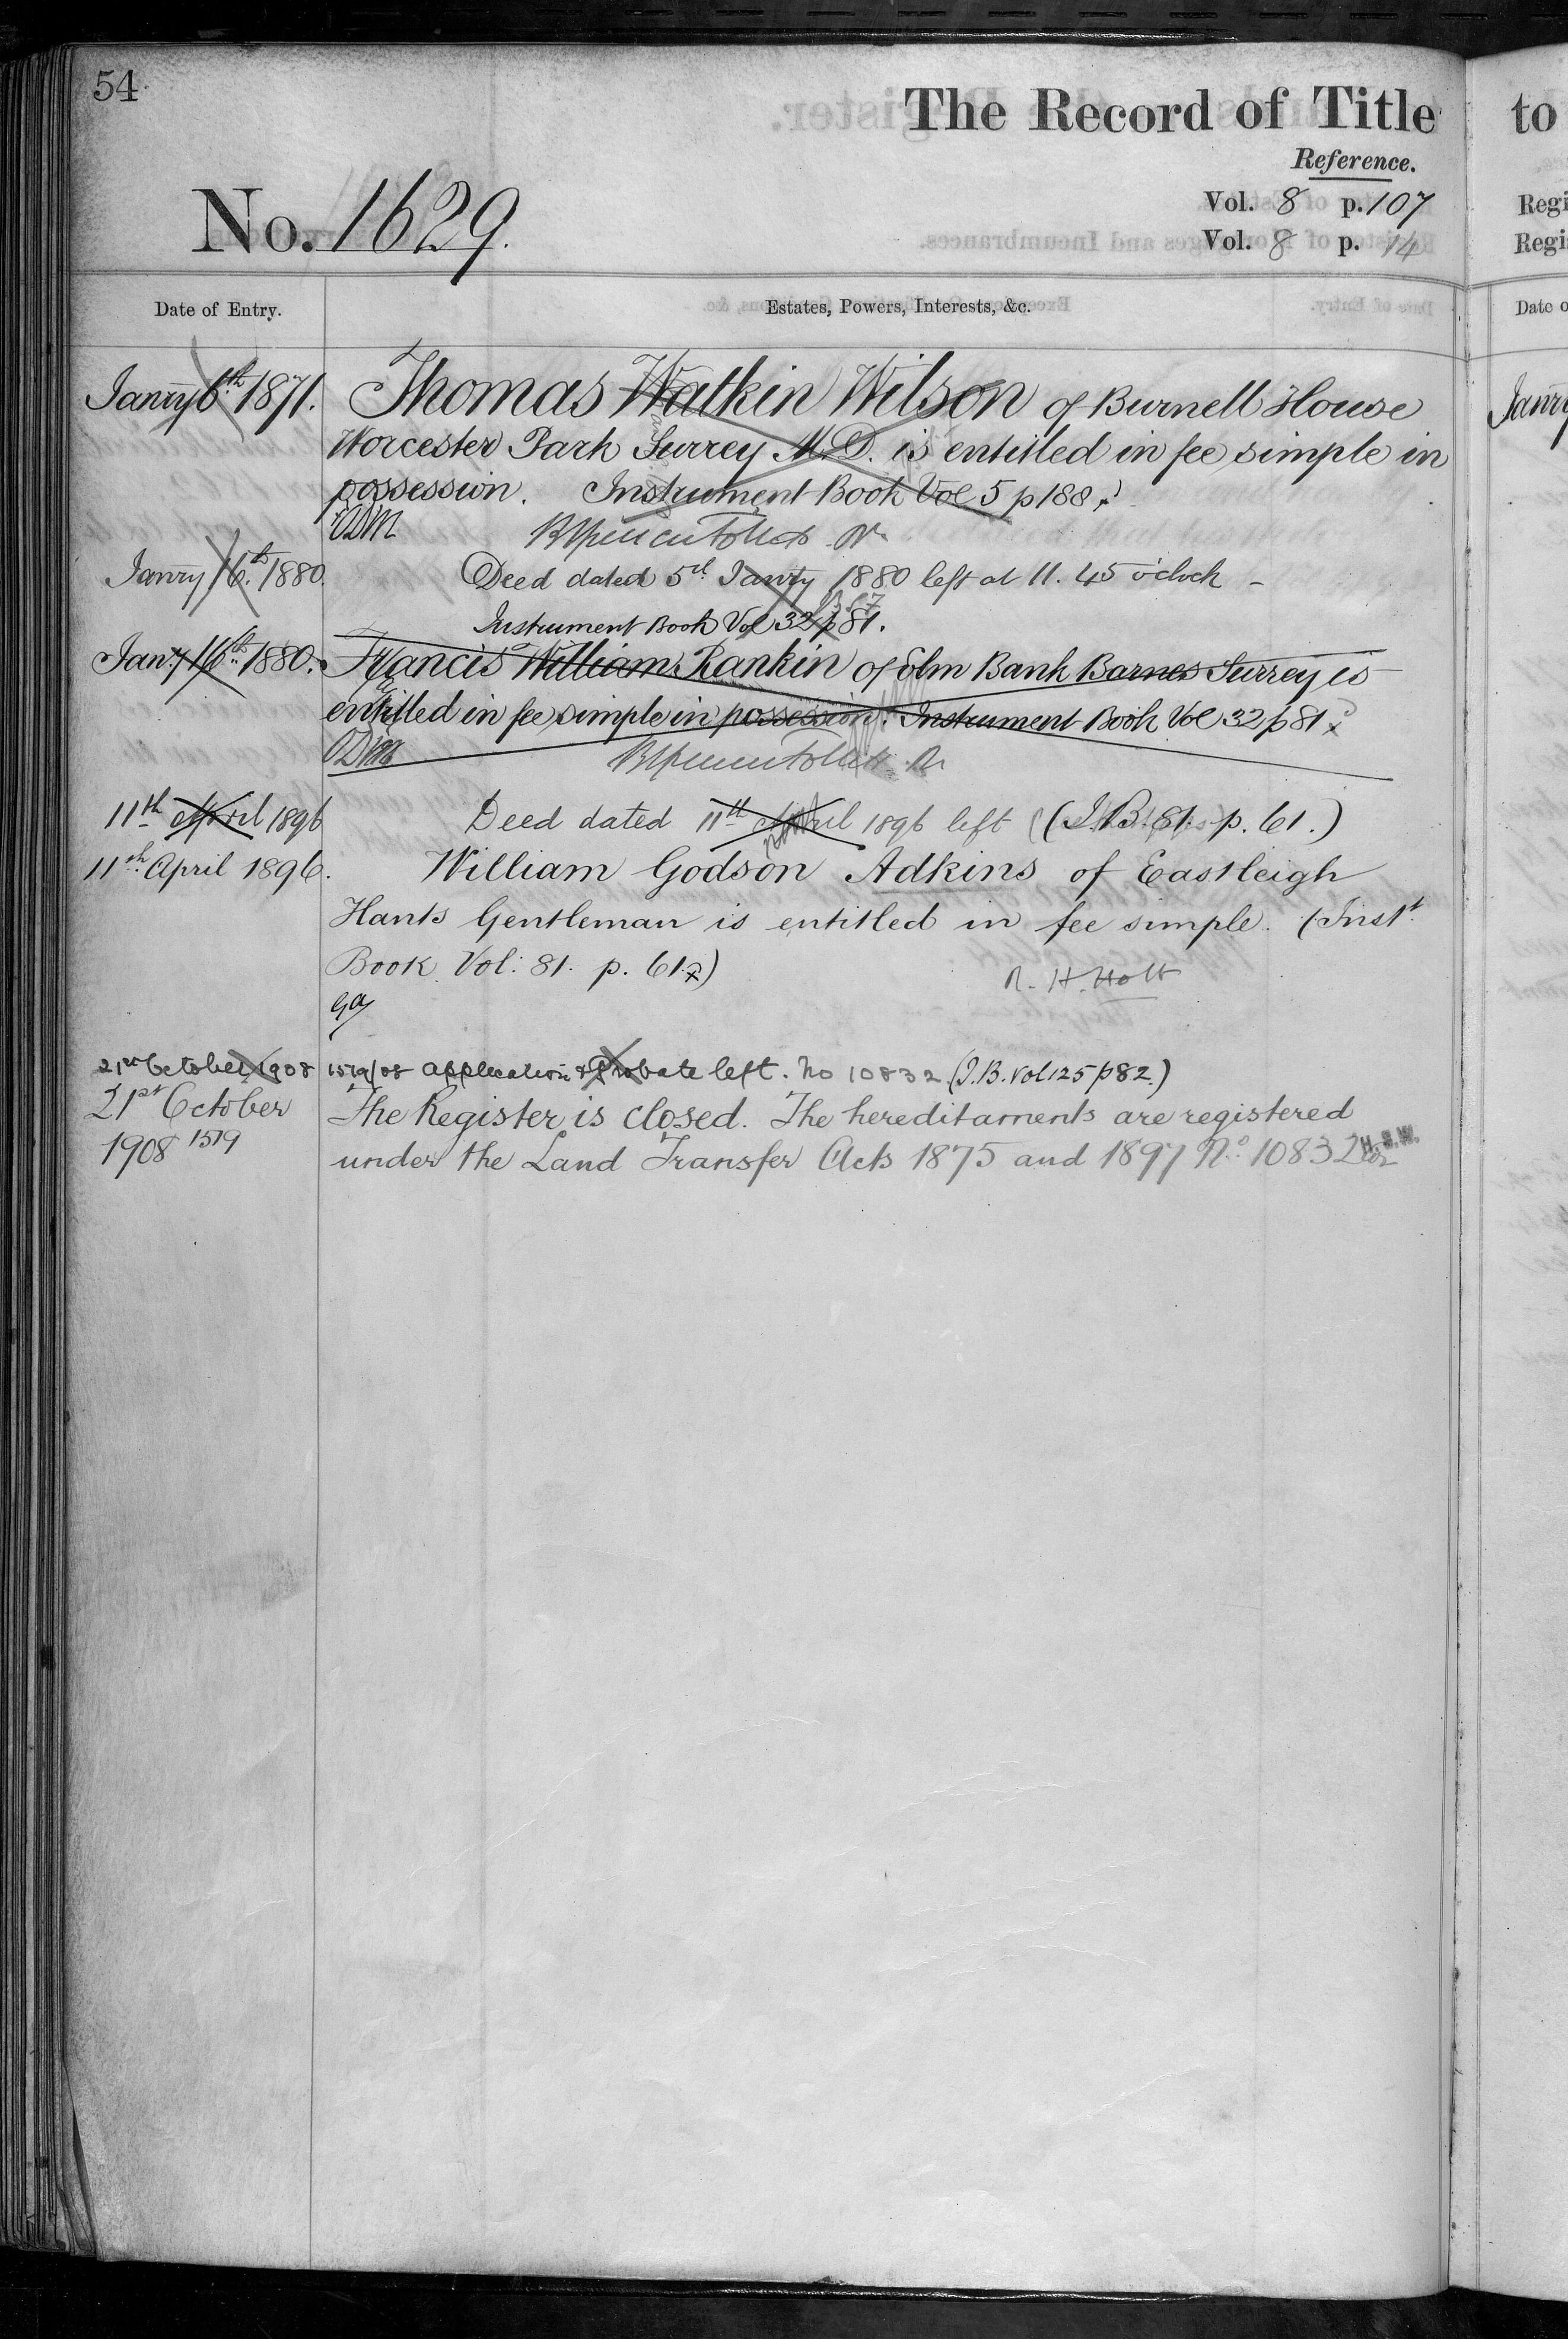 54
The Record of Title
to
Reference.
No. 1629.
Vol. 8 p. 107
Vol. 8 p. 14
Regi
Regi
Date of Entry.
Estates, Powers, Interests, &c.
Date o
Janry 6th 1871. Thomas Watkin Wilson of Burnell House
Janry
Worcester Park Surrey M.D. is entitled in fee simple in
possession. Instrument Book Vol 5 p 188
Janry 16th 1880. Deed dated 5th Janry 1880 left at 11.45 o'clock –
Instrument Book Vol 32 p 81.
Jany 16th 1880. Francis William Rankin of Elm Bank Barnes Surrey is
entitled in fee simple in possession. Instrument Book Vol 32 p 81
11th April 1896 Deed dated 11th April 1896 left (I.B. 81. p. 61.)
11th April 1896. William Godson Adkins of Eastleigh
Hants Gentleman is entitled in fee simple. (Inst.
Book Vol: 81. p. 61.)
R. H. Holt
21st October 1908 1519/08 Application & Probate left. No 10832 (I.B. Vol 125 p 82.)
21st October The Register is closed. The hereditaments are registered
1908 1519 under the Land Transfer Acts 1875 and 1897 No. 10832